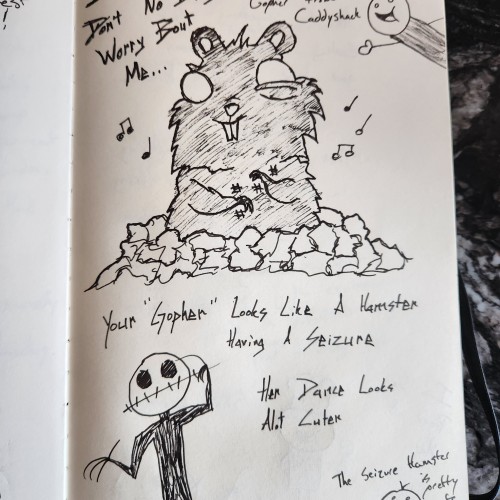 Don't No B
Worry Bout
Me...
Gopher From
Caddyshack
Your "Gopher" Looks Like A Hamster
Having A Seizure
Her Dance Looks
Alot Cuter
The Seizure Hamster
is
pretty